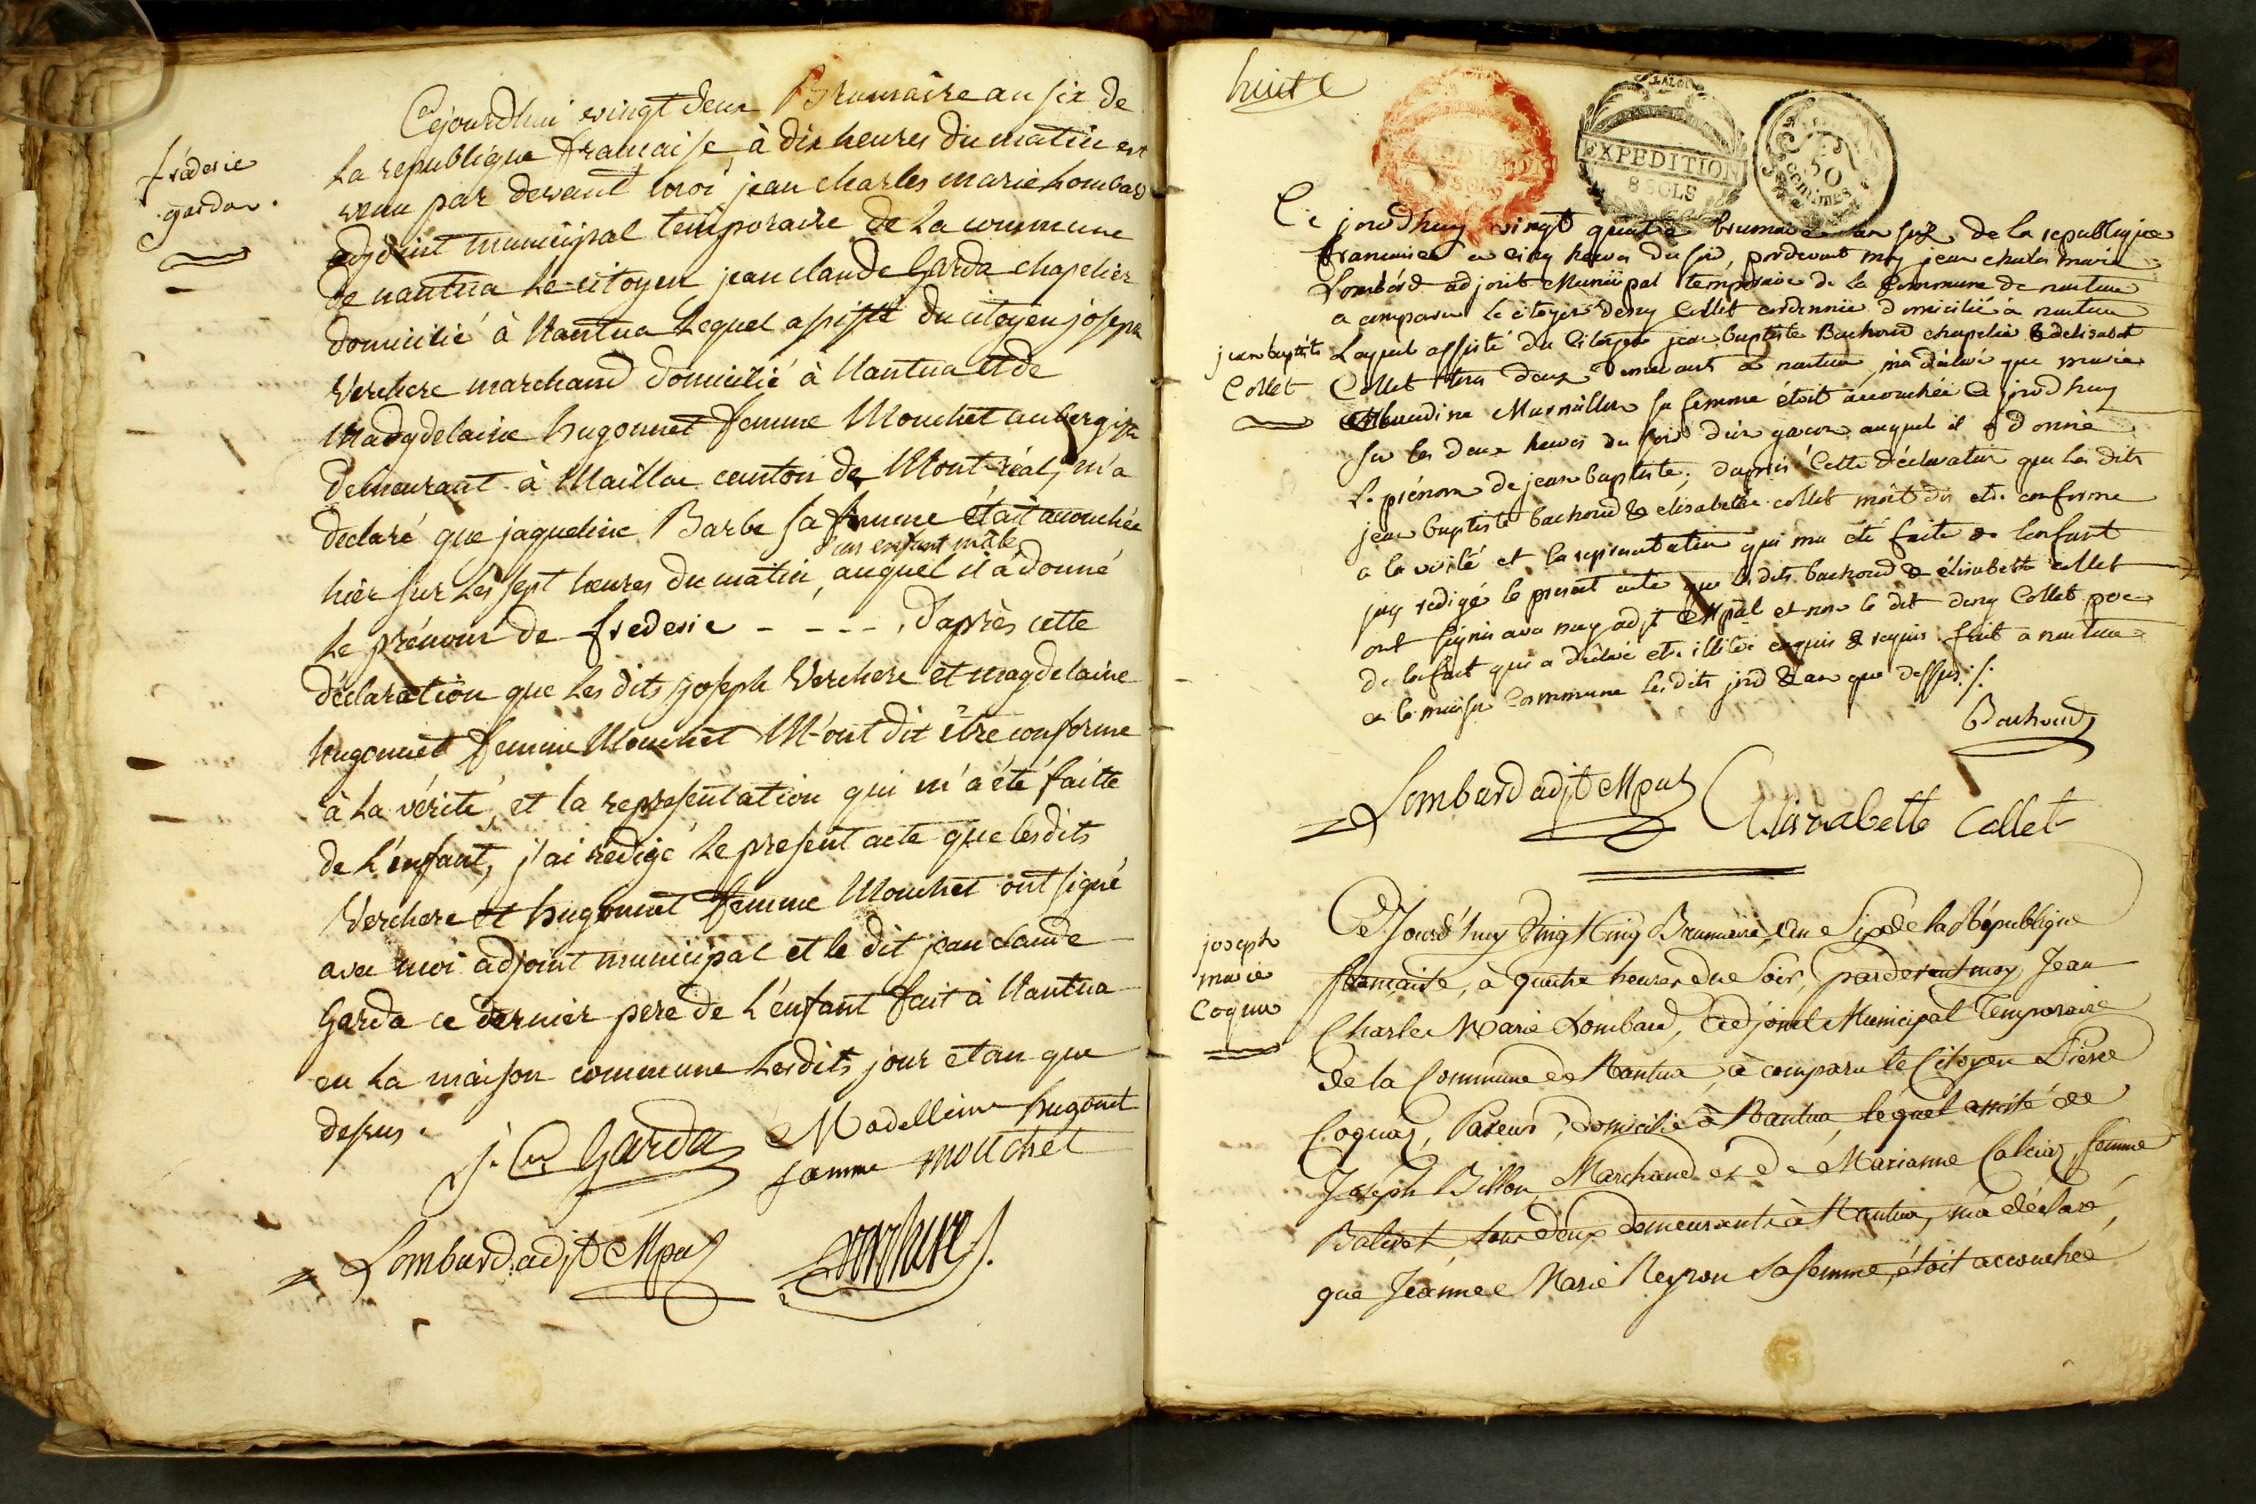 frédéric
garda.
Cejourdhui vingt deux Brumaire an six de
La republique française, à dix heures du matin est
venu par devant moi jean charles marie Lombard
adjoint municipal temporaire de La commune
de nantua Le citoyen jean claude Garda chapelier
domicilié à Nantua Lequel assisté du citoyen joseph
Verchere marchand domicilié à Nantua et de
Madgdelaine hugonnet femme Mouchet aubergiste
demeurant à Maillac canton de Mont-réal, m'a
declaré que jaqueline Barbe sa femme était accouchée
d'un enfant mâle
hier sur Les sept heures du matin, auquel il a donné
Le prénom de frederic - - - - , d'après cette
déclaration que Les dits joseph Verchere et magdelaine
hugonnet femme Mouchet M'ont dit être conforme
à La vérité, et la représentation qui m'a été faitte
de L'enfant, j'ai rédigé Le present acte que lesdits
Verchere et hugonnet femme Mouchet ont signé
avec moi adjoint municipal et le dit jean claude
Garda ce dernier pere de L'enfant fait à Nantua
en La maison commune Lesdits jour et an que
dessus.
j. Cde Garda
Madelleine hugonet
famme mouchet
Lombard adjt Mpal
verchere
huit
EXPEDITION
8 SOLS
EXPEDITION
8 SOLS
50
centimes
jean baptiste
Collet
Ce jourdhuy vingt quatre brumaire an six de la republique
francaise a cinq heures du soir, pardevant moy jean charles marie
Lombard adjoint Municipal temporaire de la Commune de nantua
a comparu le citoyen deny Collet cordonnier domicilié a nantua
Lequel assisté du Citoyen jean baptiste Bachoud chapelier & delisabet
Collet tous deux demeurants a nantua, m'a déclaré que marie
Claudine Marmillon sa femme étoit accouchée ce jourdhuy
sur les deux heures du soir d'un garcon auquel il a donné
le prénom de jean baptiste; d'après Cette déclaration que les dits
jean baptiste bachoud & elisabethe collet m'ont dit etre conforme
a la vérité et la representation qui ma été faite de lenfant
jay redigé le present acte que lesdits bachoud & élisabette collet
ont signés avec moy adjt Mpal et non le dit deny Collet pere
de lenfant qui a déclaré etre illitéré enquis & requis. fait a nantua
en la maison Commune lesdits jour & an que dessus./.
Bachoud
Lombard adjt Mpal
Elisabette Collet
joseph
marie
Coquas
Ce Jourd'huy Vingt Cinq Brumaire, an Six de la République
française, à quatre heures du Soir, pardevant moy Jean
Charles Marie Lombard, Adjoint Municipal Temporaire
de la Commune de Nantua, à comparu le Citoyen Pierre
Coquas, Paveur, domicilié à Nantua, lequel assisté de
Joseph Billon, Marchand et de Marianne Calciat femme
Balivet tous deux demeurants à Nantua, m'a déclaré,
que Jeanne Marie Reyron sa femme, étoit accouchée